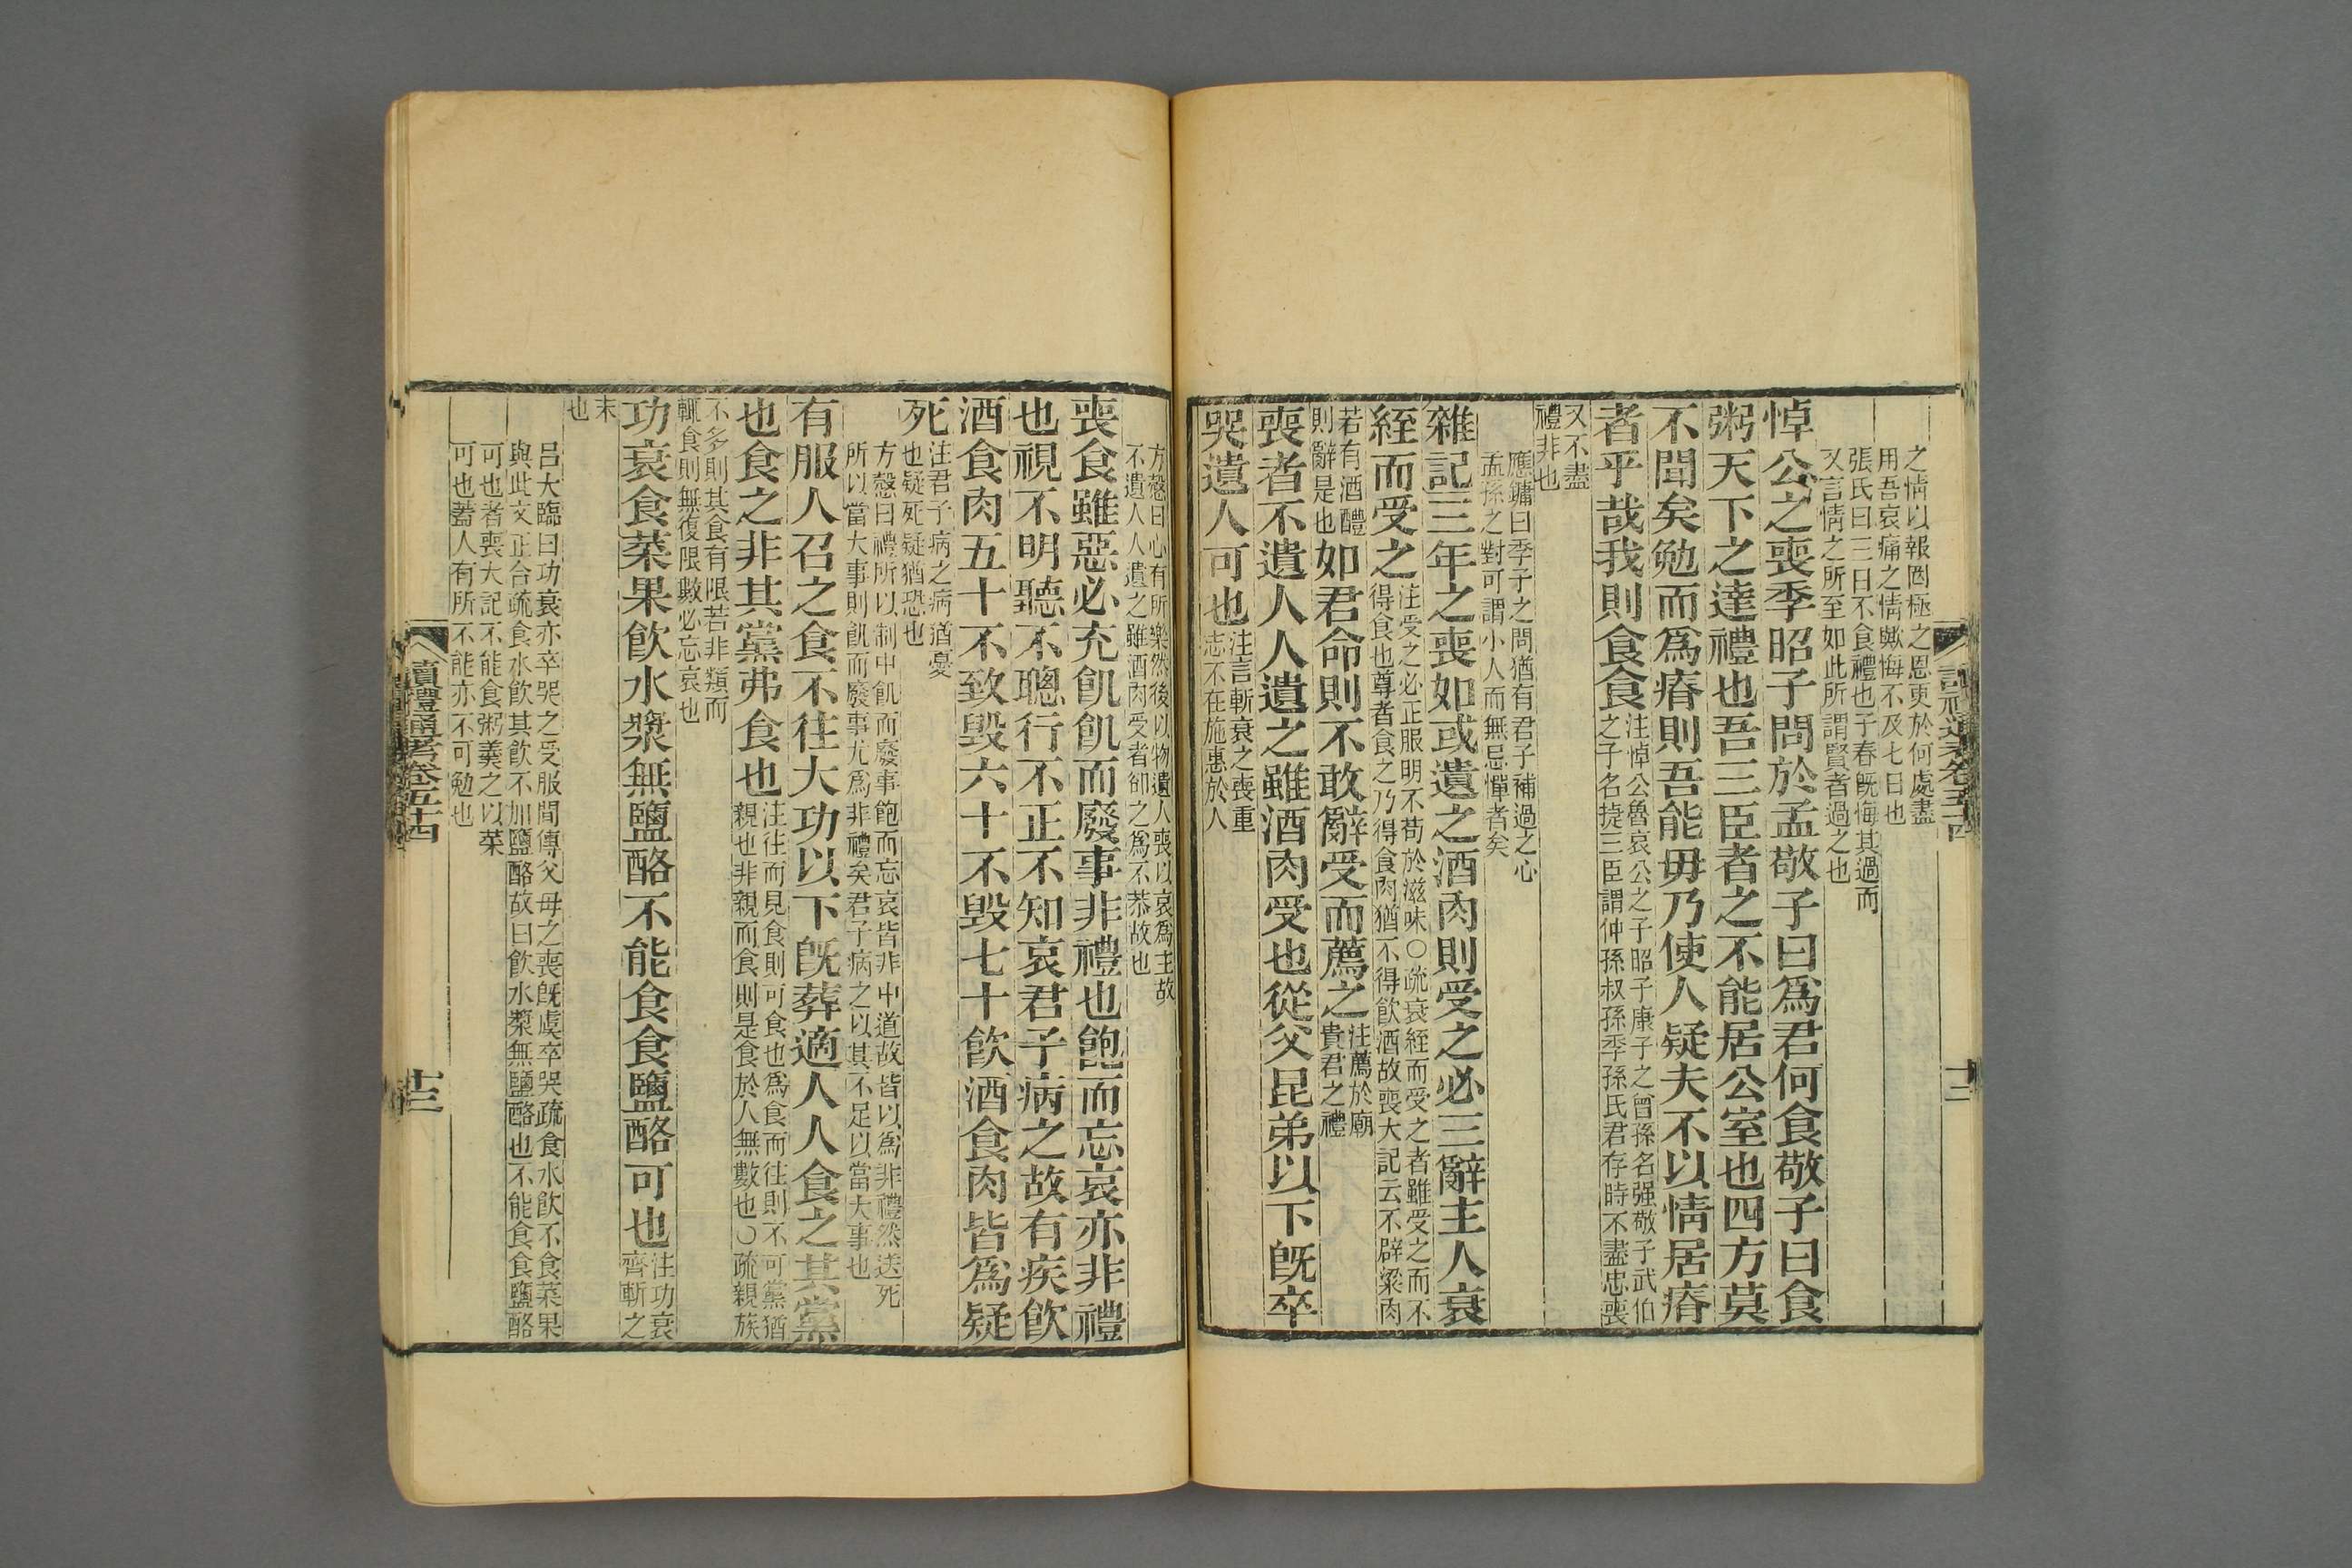 之情以報罔極之恩更於何處盡
用吾哀痛之情歟悔不及七日也
張氏曰三日不食禮也子春旣悔其過而
又言情之所至如此所謂賢者過之也
悼公之喪季昭子問於孟敬子曰爲君何食敬子曰食
粥天下之達禮也吾三臣者之不能居公室也四方莫
不聞矣勉而爲瘠則吾能毋乃使人疑夫不以情居瘠
者乎哉我則食食注悼公魯哀公之子昭子康子之曾孫名强敬子武伯
之子名㨗三臣謂仲孫叔孫季孫氏君存時不盡忠喪
又不盡
禮非也
應鏞曰季子之問猶有君子補過之心
孟孫之對可謂小人而無忌憚者矣
雜記三年之喪如或遺之酒肉則受之必三辭主人衰
絰而受之注受之必正服明不苟於滋味○疏衰絰而受之者雖受之而不
得食也尊者食之乃得食肉猶不得飮酒故喪大記云不辟粱肉
若有酒醴
則辭是也如君命則不敢辭受而薦之注薦於廟
貴君之禮
喪者不遺人人遺之雖酒肉受也從父昆弟以下旣卒
哭遺人可也注言斬衰之喪重
志不在施惠於人
方慤曰心有所樂然後以物遺人喪以哀爲主故
不遺人人遺之雖酒肉受者卻之爲不恭故也
喪食雖惡必充飢飢而廢事非禮也飽而忘哀亦非禮
也視不明聽不聰行不正不知哀君子病之故有疾飮
酒食肉五十不致毀六十不毀七十飮酒食肉皆爲疑
死注君子病之病猶憂
也疑死疑猶恐也
方慤曰禮所以制中飢而廢事飽而忘哀皆非中道故皆以爲非禮然送死
所以當大事則飢而廢事尤爲非禮矣君子病之以其不足以當大事也
有服人召之食不往大功以下旣葬適人人食之其黨
也食之非其黨弗食也注往而見食則可食也爲食而往則不可黨猶
親也非親而食則是食於人無數也○疏親族
不多則其食有限若非類而
輒食則無復限數必忘哀也
功衰食菜果飮水漿無鹽酪不能食食鹽酪可也注功衰
齊斬之
末
也
呂大臨曰功衰亦卒哭之受服間傳父母之喪旣虞卒哭疏食水飮不食菜果
與此文正合疏食水飮其飮不加鹽酪故曰飮水漿無鹽酪也不能食食鹽酪
可也者喪大記不能食粥羹之以菜
可也蓋人有所不能亦不可勉也
讀禮通考卷五十四
十三